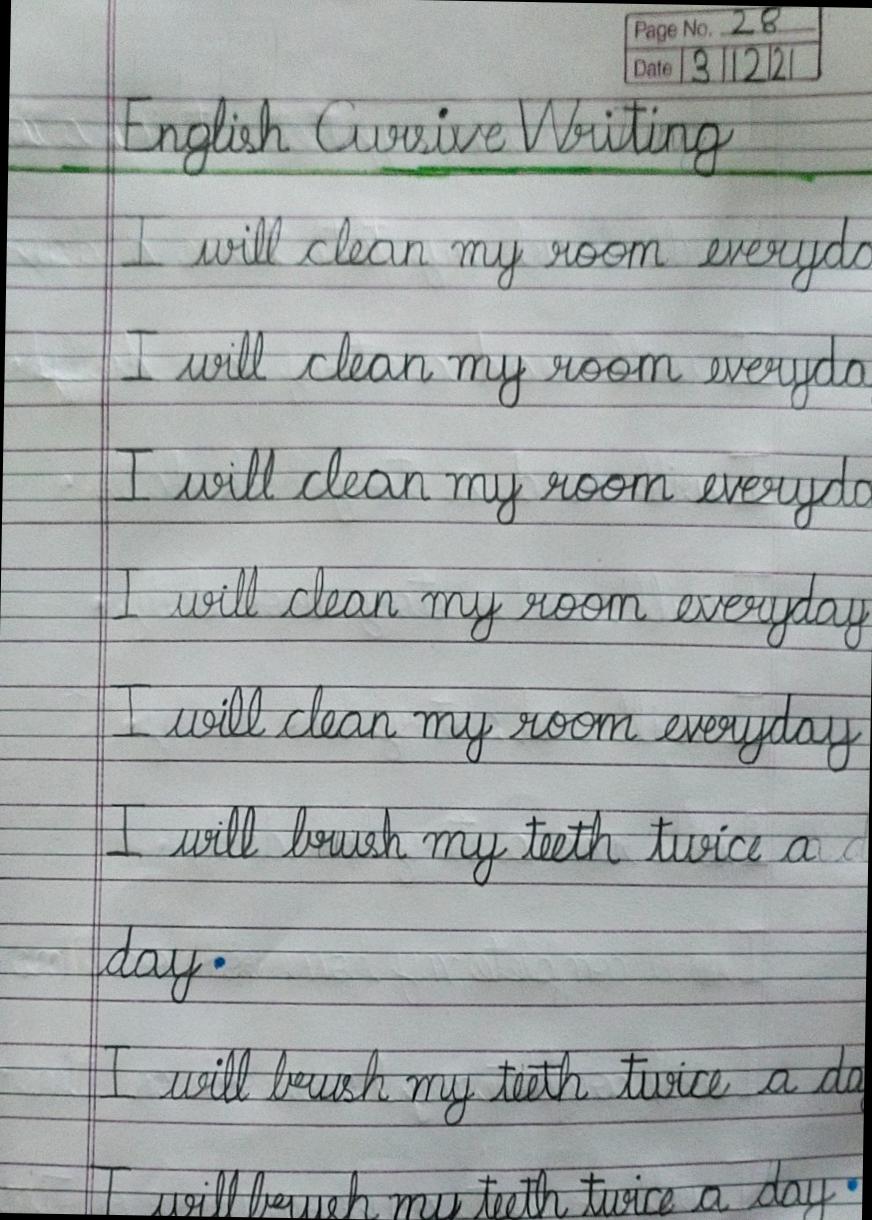 Page No. 28
Date 3/12/21
English Cursive Writing
I will clean my room everyda
I will clean my room everyda
I will clean my room everyda
I will clean my room everyday
I will clean my room everyday
I will brush my teeth twice a d
day.
I will brush my teeth twice a da
I will brush my teeth twice a day.